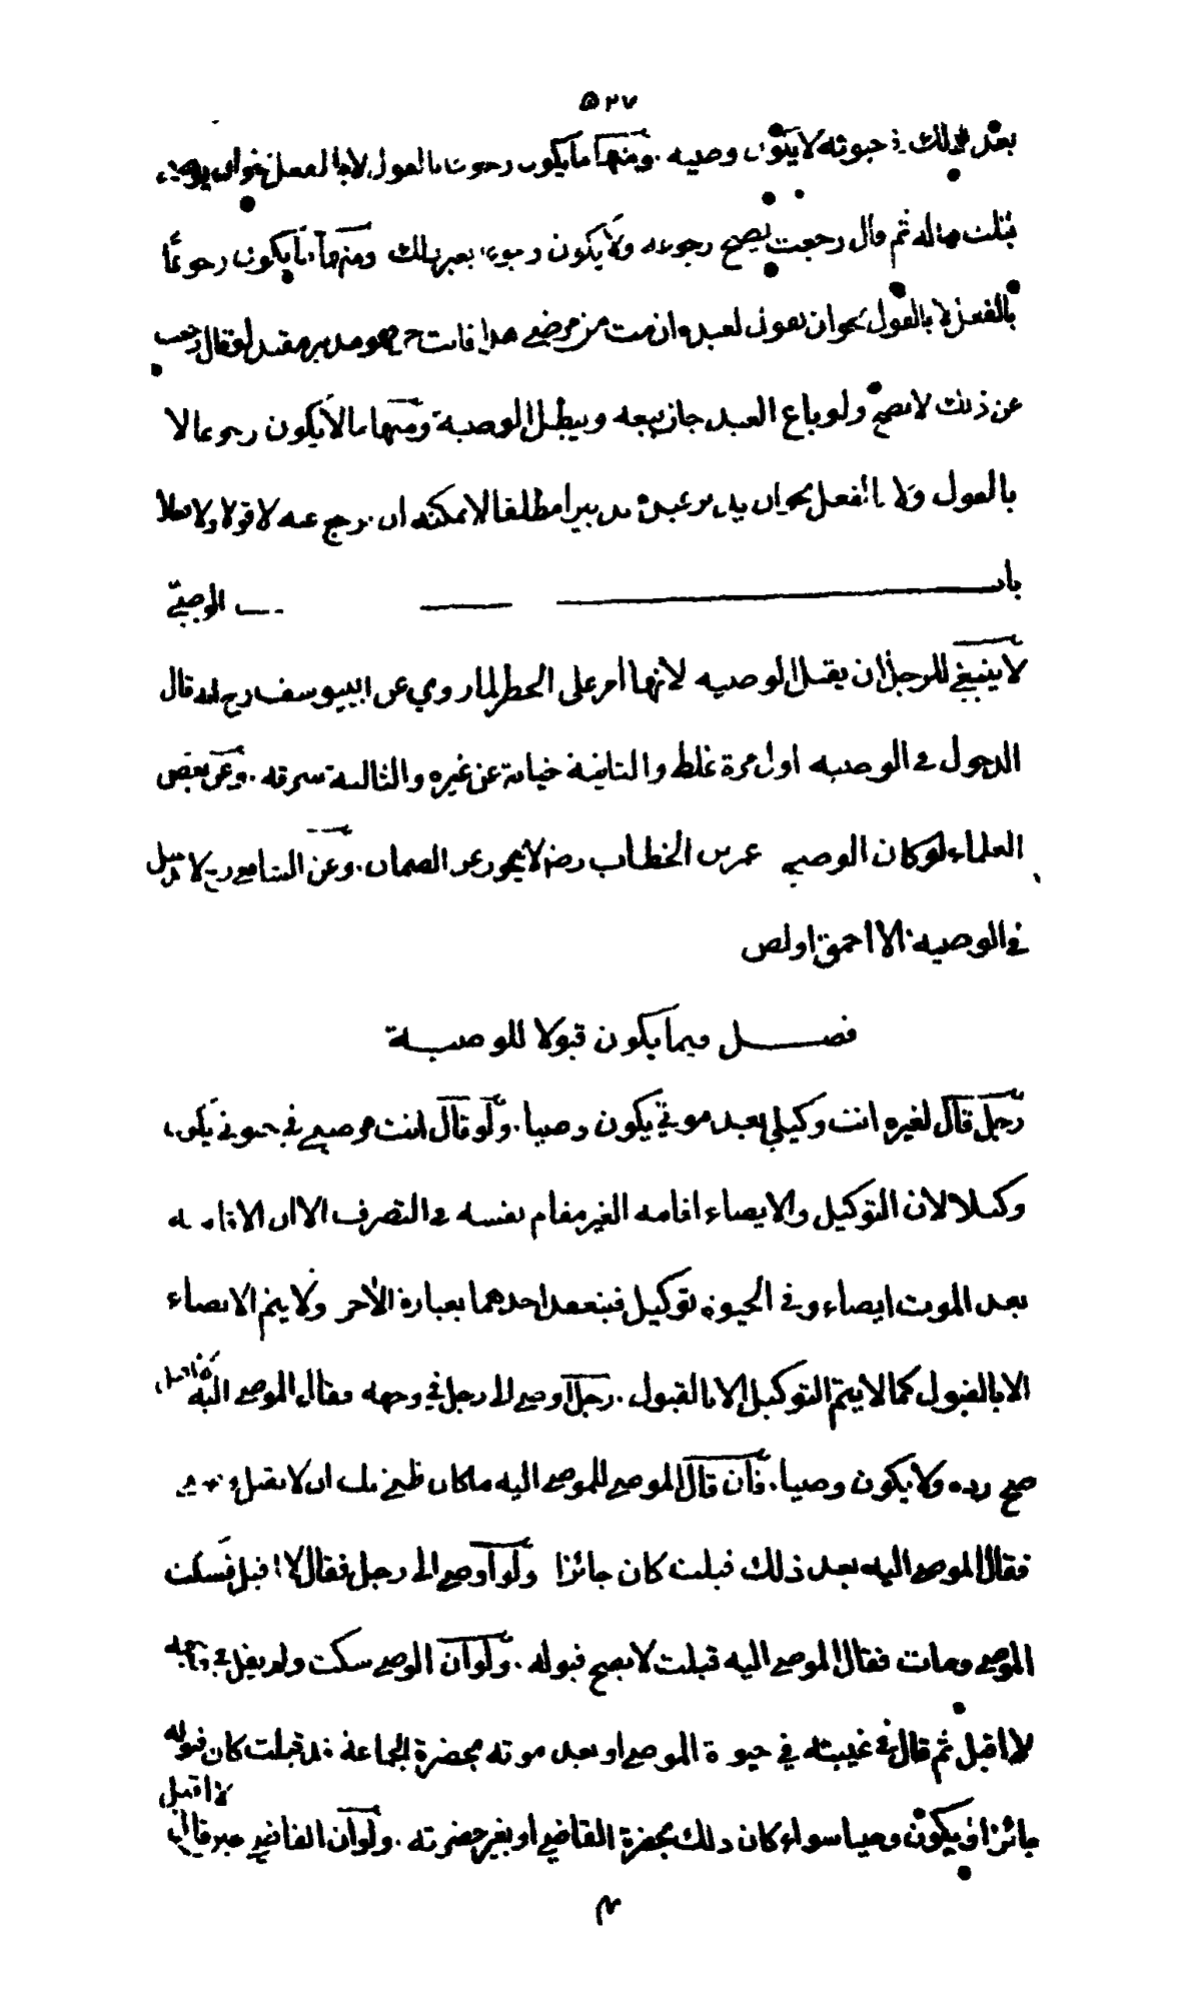 ٥٢٧
بعد ذلك في حيوته لا يكون وصيه . ومنها ما يكون رجوعا بالقول لا بالفعل نحو ان يوصى
بثلث ماله ثم قال رجعت يصح رجوعه ولا يكون رجوعا بغير ذلك ومنها ما يكون رجوعا
بالفعل لا بالقول نحو ان يقول لعبده ان مت من مرضي هذا فانت حر فهو مدبر مقيد لو قال رجعت
عن ذلك لا يصح ولو باع العبد جاز بيعه ويبطل الوصية ومنها ما لا يكون رجوعا لا
بالقول ولا بالفعل نحو ان يدبر عبده تدبيرا مطلقا لا يمكنه ان يرجع عنه لا قولا ولا فعلا
باب الوصي
لا ينبغي للرجل ان يقبل الوصيه لانها امر على الخطر لما روي عن ابي يوسف رح انه قال
الدخول في الوصيه اول مرة غلط والثانية خيانة عن غيره والثالثة سرقه . وعن بعض
العلماء لو كان الوصي عمر بن الخطاب رضه لا يجو عن الضمان . وعن الشافعي رح لا يدخل
في الوصيه الا احمق او لص
فصل فيما يكون قبولا للوصية
رجل قال لغيره انت وكيلي بعد موتي يكون وصيا . ولو قال انت وصيي في حيوتي يكون
وكيلا لان التوكيل والايصاء اقامه الغير مقام نفسه في التصرف الا ان الاقامه
بعد الموت ايصاء وفي الحيوة توكيل فينعقد احدهما بعبارة الاخر ولا يتم الايصاء
الا بالقبول كما لا يتم التوكيل الا بالقبول . رجل اوصى الى رجل في وجهه فقال الموصى اليه لا اقبل
صح رده ولا يكون وصيا . فان قال الموصي للموصى اليه ما كان ظني بك ان لا تقبل وصيتي
فقال الموصى اليه بعد ذلك قبلت كان جائزا ولو اوصى الى رجل فقال لا اقبل فسكت
الموصي ومات فقال الموصى اليه قبلت لا يصح قبوله . ولو ان الوصي سكت ولم يقل في وجهه
لا اقبل ثم قال في غيبته في حيوة الموصي او بعد موته بحضرة الجماعة قد قبلت كان قبوله
جائزا ويكون وصيا سواء كان ذلك بحضرة القاضي او بغير حضرته . ولو ان القاضي حين قال لا اقبل